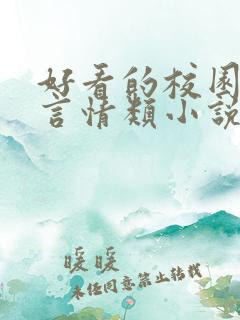 好看的校园
言情类小说
暖暖
未经同意禁止转载